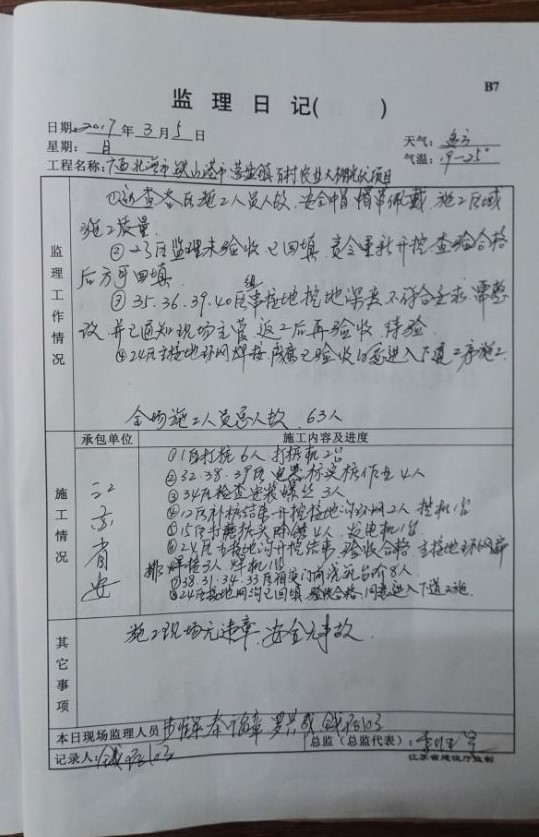 B7
监 理 日 记( )
日期:2017年3月5日
天气:
星期: 日
气温: 19-25°
工程名称:广西北海市铁山港市营盘镇 村农业大棚光伏项目
监理工作情况
①巡查各区施工人员人数,安全帽 帽带佩戴,施工区域
施工质量.
② 23区监理未验收已回填,责令重新开挖查验合格
后方可回填.
③ 35.36.39.40区 接地挖地深度不符合要求,需整
改并已通知现场主管,返工后再验收.待验.
④24区主接地环网焊接, 已验收 进入下道工序施工.
全场施工人员总人数 63人
承包单位
施工内容及进度
施工情况
江
苏
省
安
①1区打桩6人,打桩机2台
②32.38.39区 标实桩作业4人
③34区检查安装螺丝3人
④12区补桩结束开挖接地沟环网2人 挖机1台
⑤15区 4人,发电机1台
⑥24区主接地沟开挖结束,验收合格,主接地环网
焊接3人 焊机1台
⑦38.31.34.33区 门前浇筑台阶8人
⑧24区接地网沟已回填 验收合格,同意进入下道工施.
其它事项
施工现场无违章,安全无事故.
本日现场监理人员
总监(总监代表):
记录人:
江苏省建设厅监制